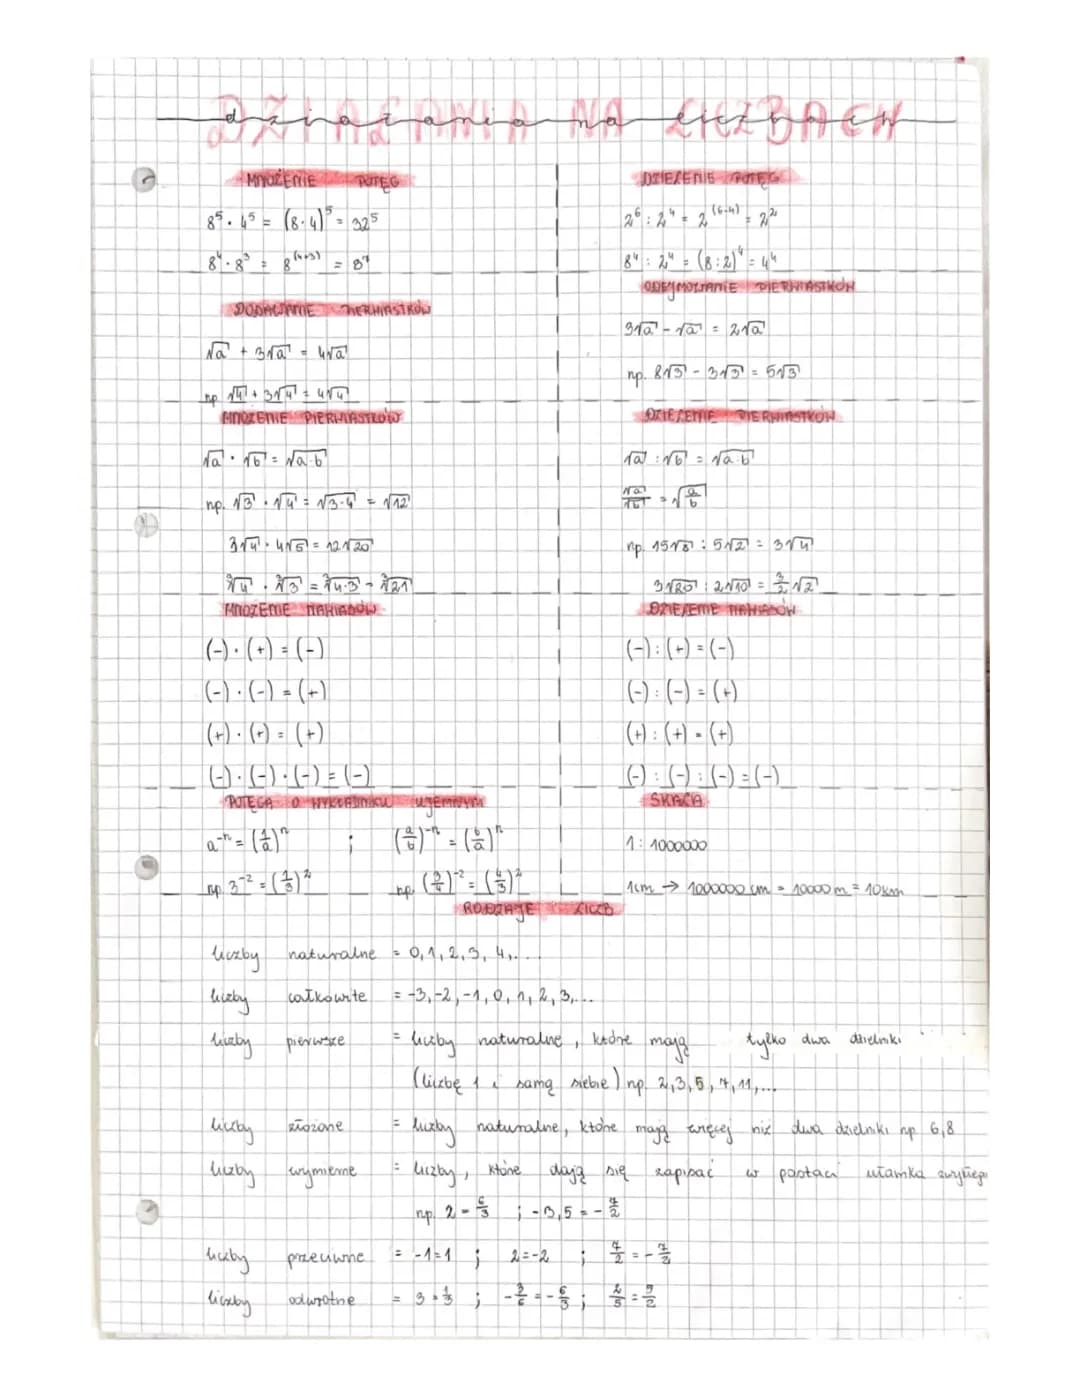 działania na liczbach
DZIAŁANIA NA LICZBACH
MNOŻENIE POTĘG
8⁵ · 4⁵ = (8·4)⁵ = 32⁵
8⁴ · 8³ = 8⁽⁴⁺³⁾ = 8⁷
DODAWANIE PIERWIASTKÓW
√a + 3√a = 4√a
np √4 + 3√4 = 4√4
MNOŻENIE PIERWIASTKÓW
√a · √b = √a·b
np. √3 · √4 = √3·4 = √12
3√4 · 4√5 = 12√20
∛4 · ∛3 = ∛4·3 = ∛21
MNOŻENIE NAWIASÓW
(-) · (+) = (-)
(-) · (-) = (+)
(+) · (+) = (+)
(-) · (-) · (-) = (-)
POTĘGA O WYKŁADNIKU UJEMNYM
a⁻ⁿ = (1/a)ⁿ ; (a/b)⁻ⁿ = (b/a)ⁿ
np. 3⁻² = (1/3)² np. (3/4)⁻² = (4/3)²
DZIELENIE POTĘG
2⁶ : 2⁴ = 2⁽⁶⁻⁴⁾ = 2²
8⁴ : 2⁴ = (8:2)⁴ = 4⁴
ODEJMOWANIE PIERWIASTKÓW
3√a - √a = 2√a
np. 8√3 - 3√3 = 5√3
DZIELENIE PIERWIASTKÓW
√a : √b = √a:b
√a/√b = √a/b
np. 15√8 : 5√2 = 3√4
3√20 : 2√10 = 3/2 √2
DZIELENIE NAWIASÓW
(-) : (+) = (-)
(-) : (-) = (+)
(+) : (+) = (+)
(-) : (-) : (-) = (-)
SKALA
1 : 1000000
1cm → 1000000 cm = 10000 m = 10km
RODZAJE LICZB
liczby naturalne = 0, 1, 2, 3, 4,...
liczby całkowite = -3, -2, -1, 0, 1, 2, 3,...
liczby pierwsze = liczby naturalne, które mają tylko dwa dzielniki
(liczbę 1 i samą siebie) np. 2, 3, 5, 7, 11,...
liczby złożone = liczby naturalne, które mają więcej niż dwa dzielniki np 6,8
liczby wymierne = liczby, które dają się zapisać w postaci ułamka zwykłego
np. 2 = 6/3 ; -3,5 = -7/2
liczby przeciwne = -1=1 ; 2=-2 ; 7/2 = -7/2
liczby odwrotne = 3 = 1/3 ; -3/6 = -6/3 ; 2/9 = 9/2